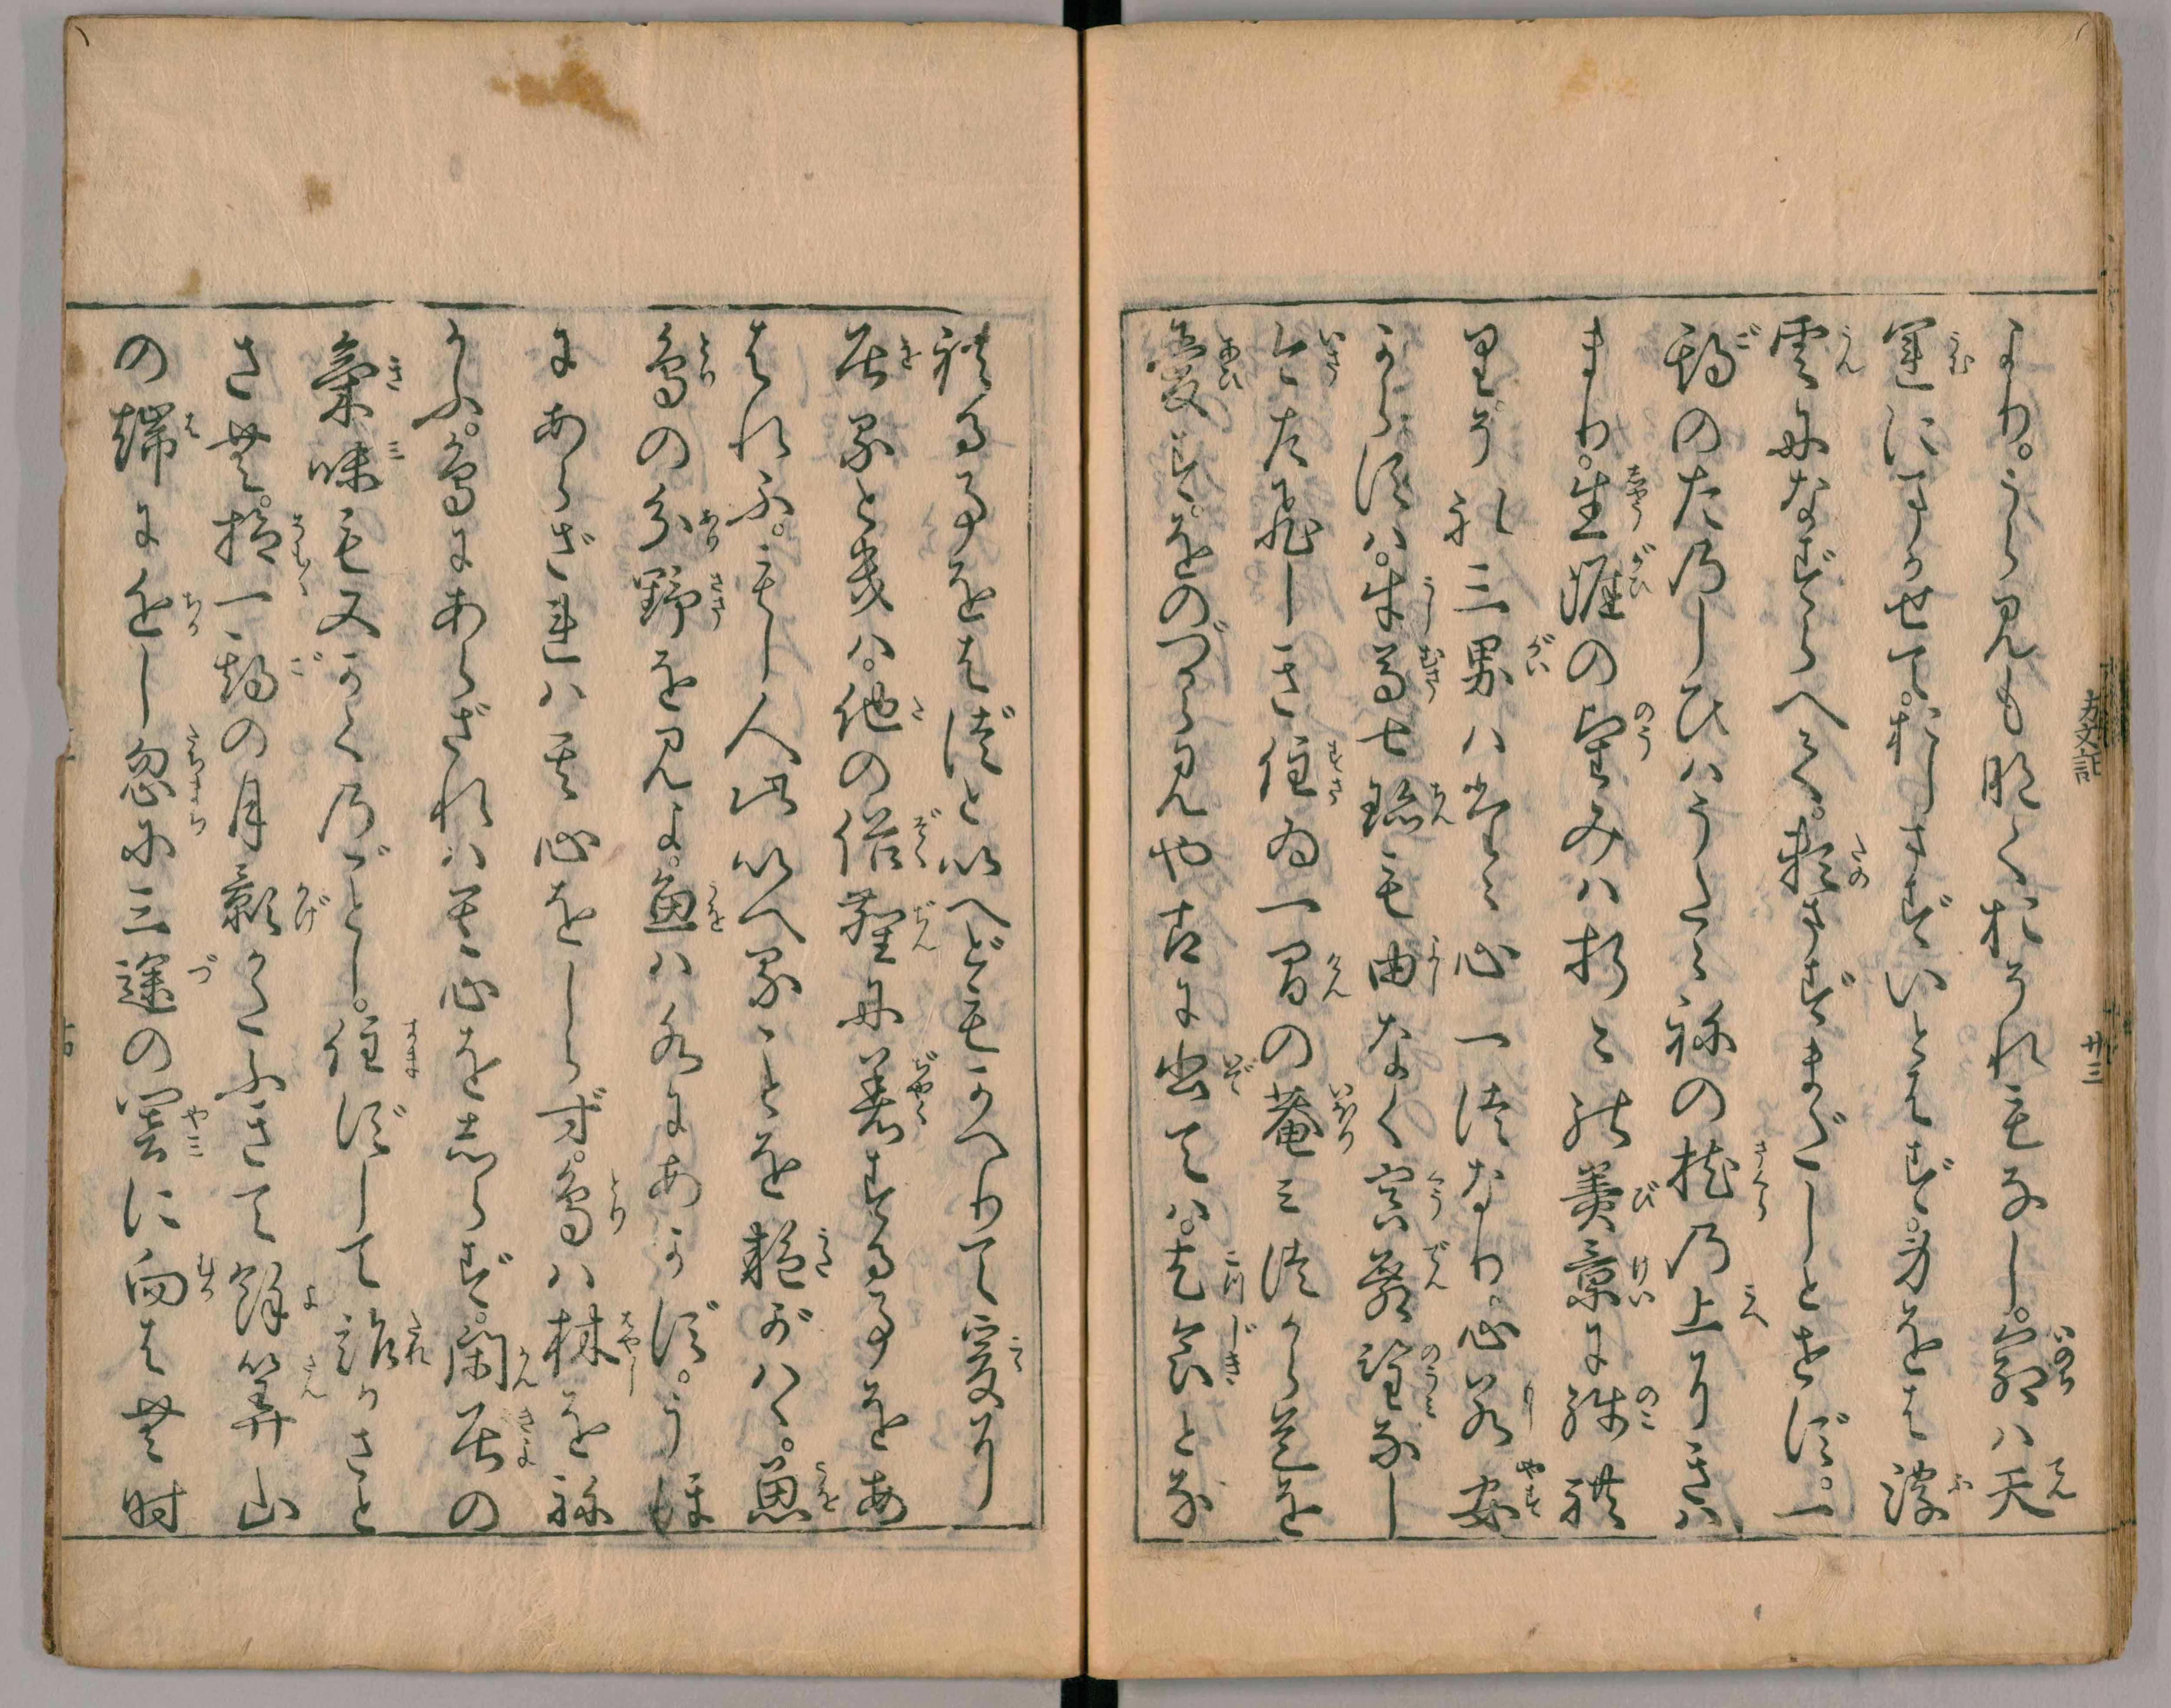 方丈記 廿三
より。うらみも那くおそれもなし。命ハ天
運にまかせて。おしまずいとはず。身をは浮
雲になずらへて。頼まずまだしとせず。一
期のたのしひハうたゝねの枕の上にきハ
まり。生涯の望みハ折々の美景に残れ
り。それ三界ハたゝ心一つなり。心若安
からずハ。牛馬七珎も由なく宮殿望なし
今さひしき住ゐ一間の菴みつから是を
愛す。をのづから見や古に出てハ。乞食とな
れる事をはづといへどもかへりて爰に
居る時ハ。他の俗塵に著する事をあ
はれふ。もし人此いへることを疑がハヽ。魚
鳥の分野を見よ。魚ハ水にあかず。うほ
にあらざれハ其心をしらず。鳥ハ林をね
かふ。鳥にあらざれハ其心をしらず。閑居の
気味も又かくのごとし。住ずして誰かさと
さむ。抑一期の月影かたふきて餘算山
の端に近し忽に三途の闇に向はむ時